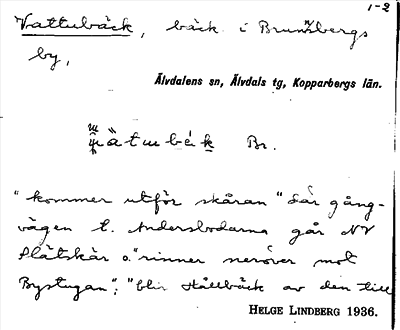 1-2
Vattubäck, bäck i Brunnsbergs
by,
Älvdalens sn, Älvdals tg, Kopparbergs län.
Br.
"kommer utför skåran" där gång-
vägen t. Andersbodarna går NV
Slätskär o. "rinner neröver mot
Bystugan"; "blir Hållbäck av den till
HELGE LINDBERG 1936.